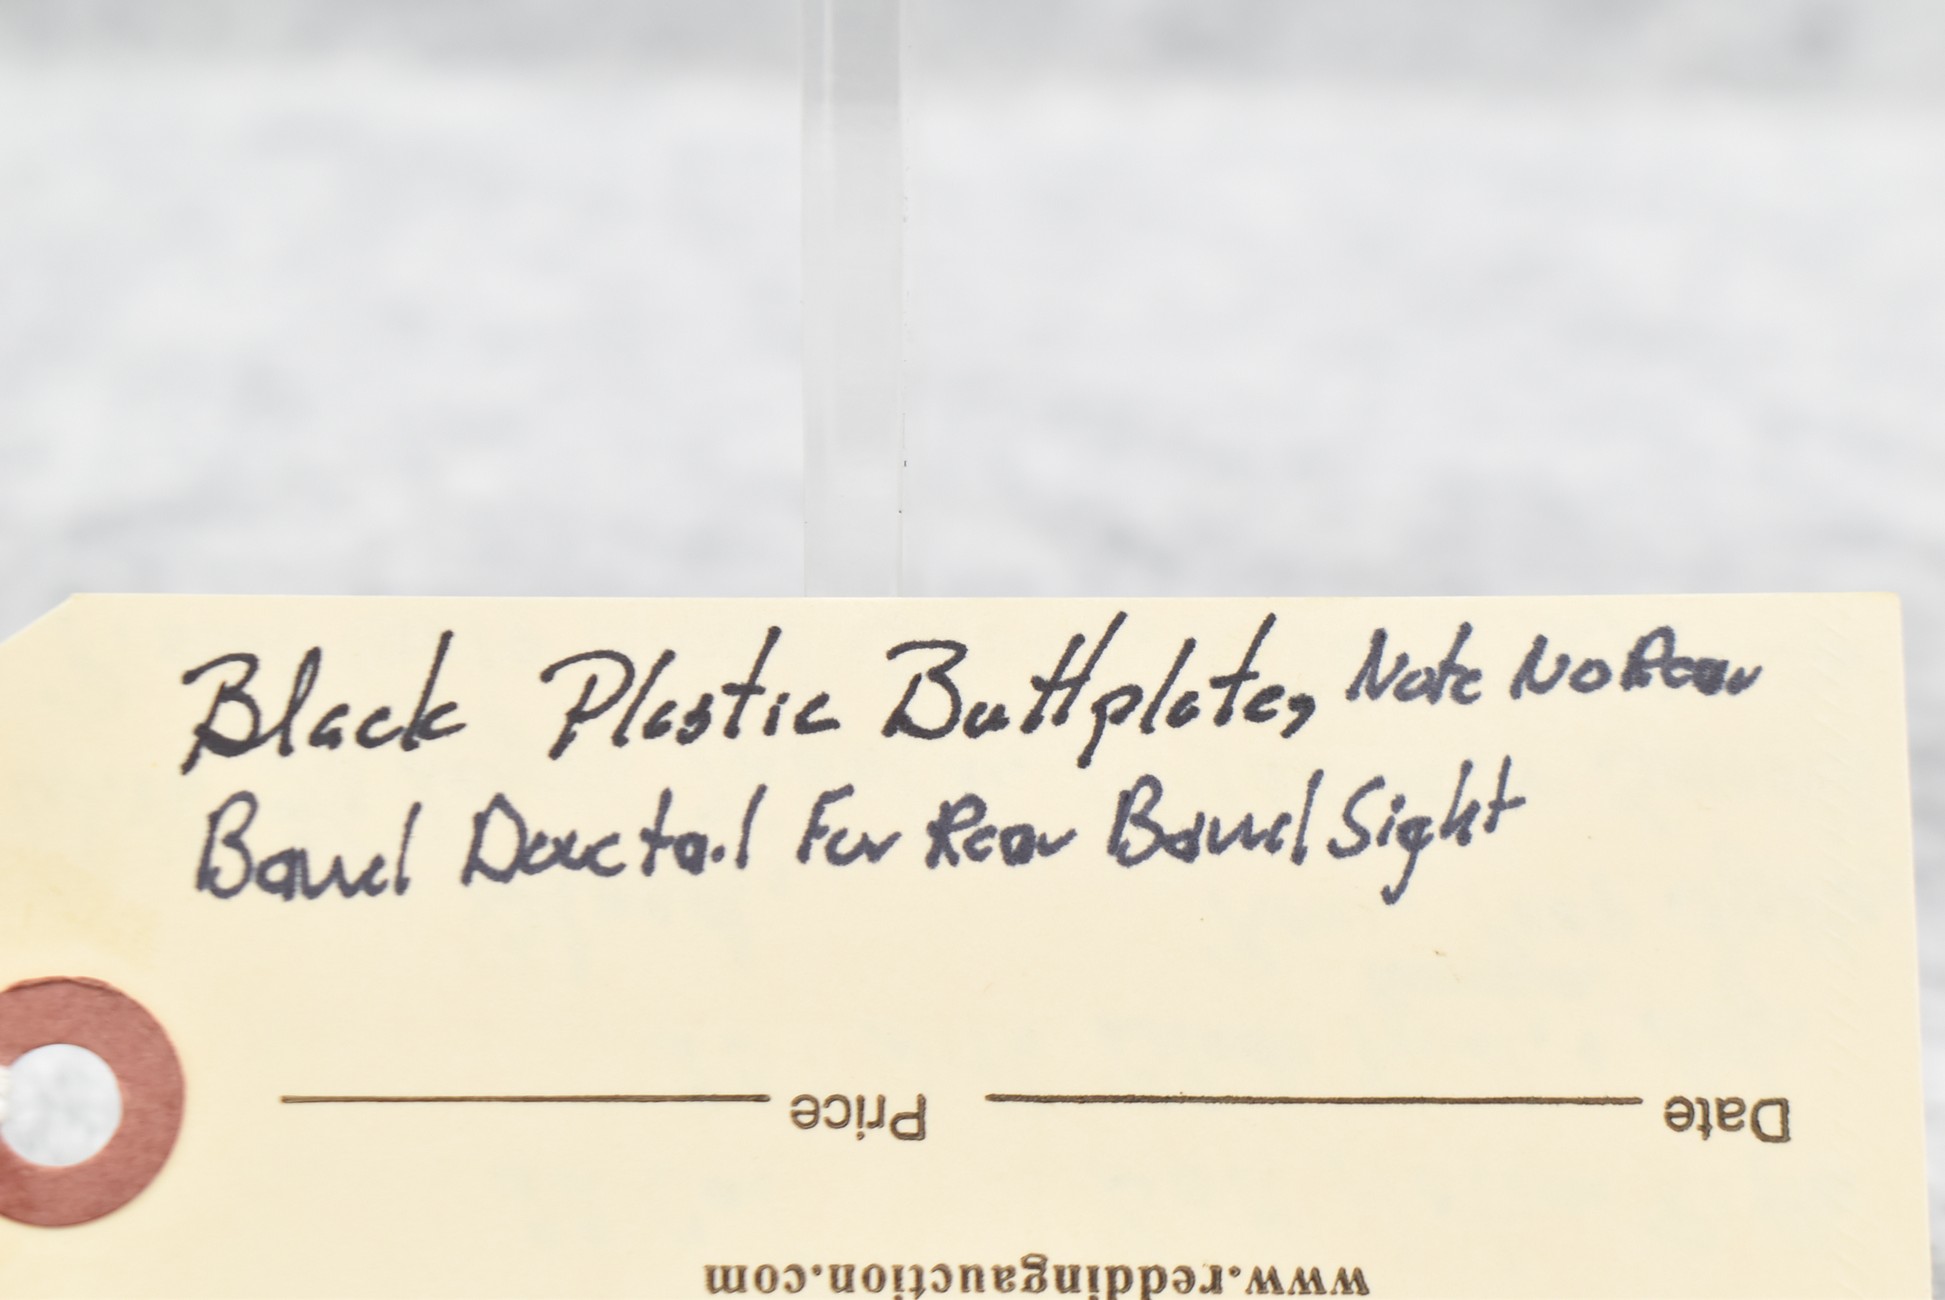 Black Plastic Buttplate, Note No Rear
Barrel Dovetail For Rear Barrel Sight
Price Date
www.reddingauction.com